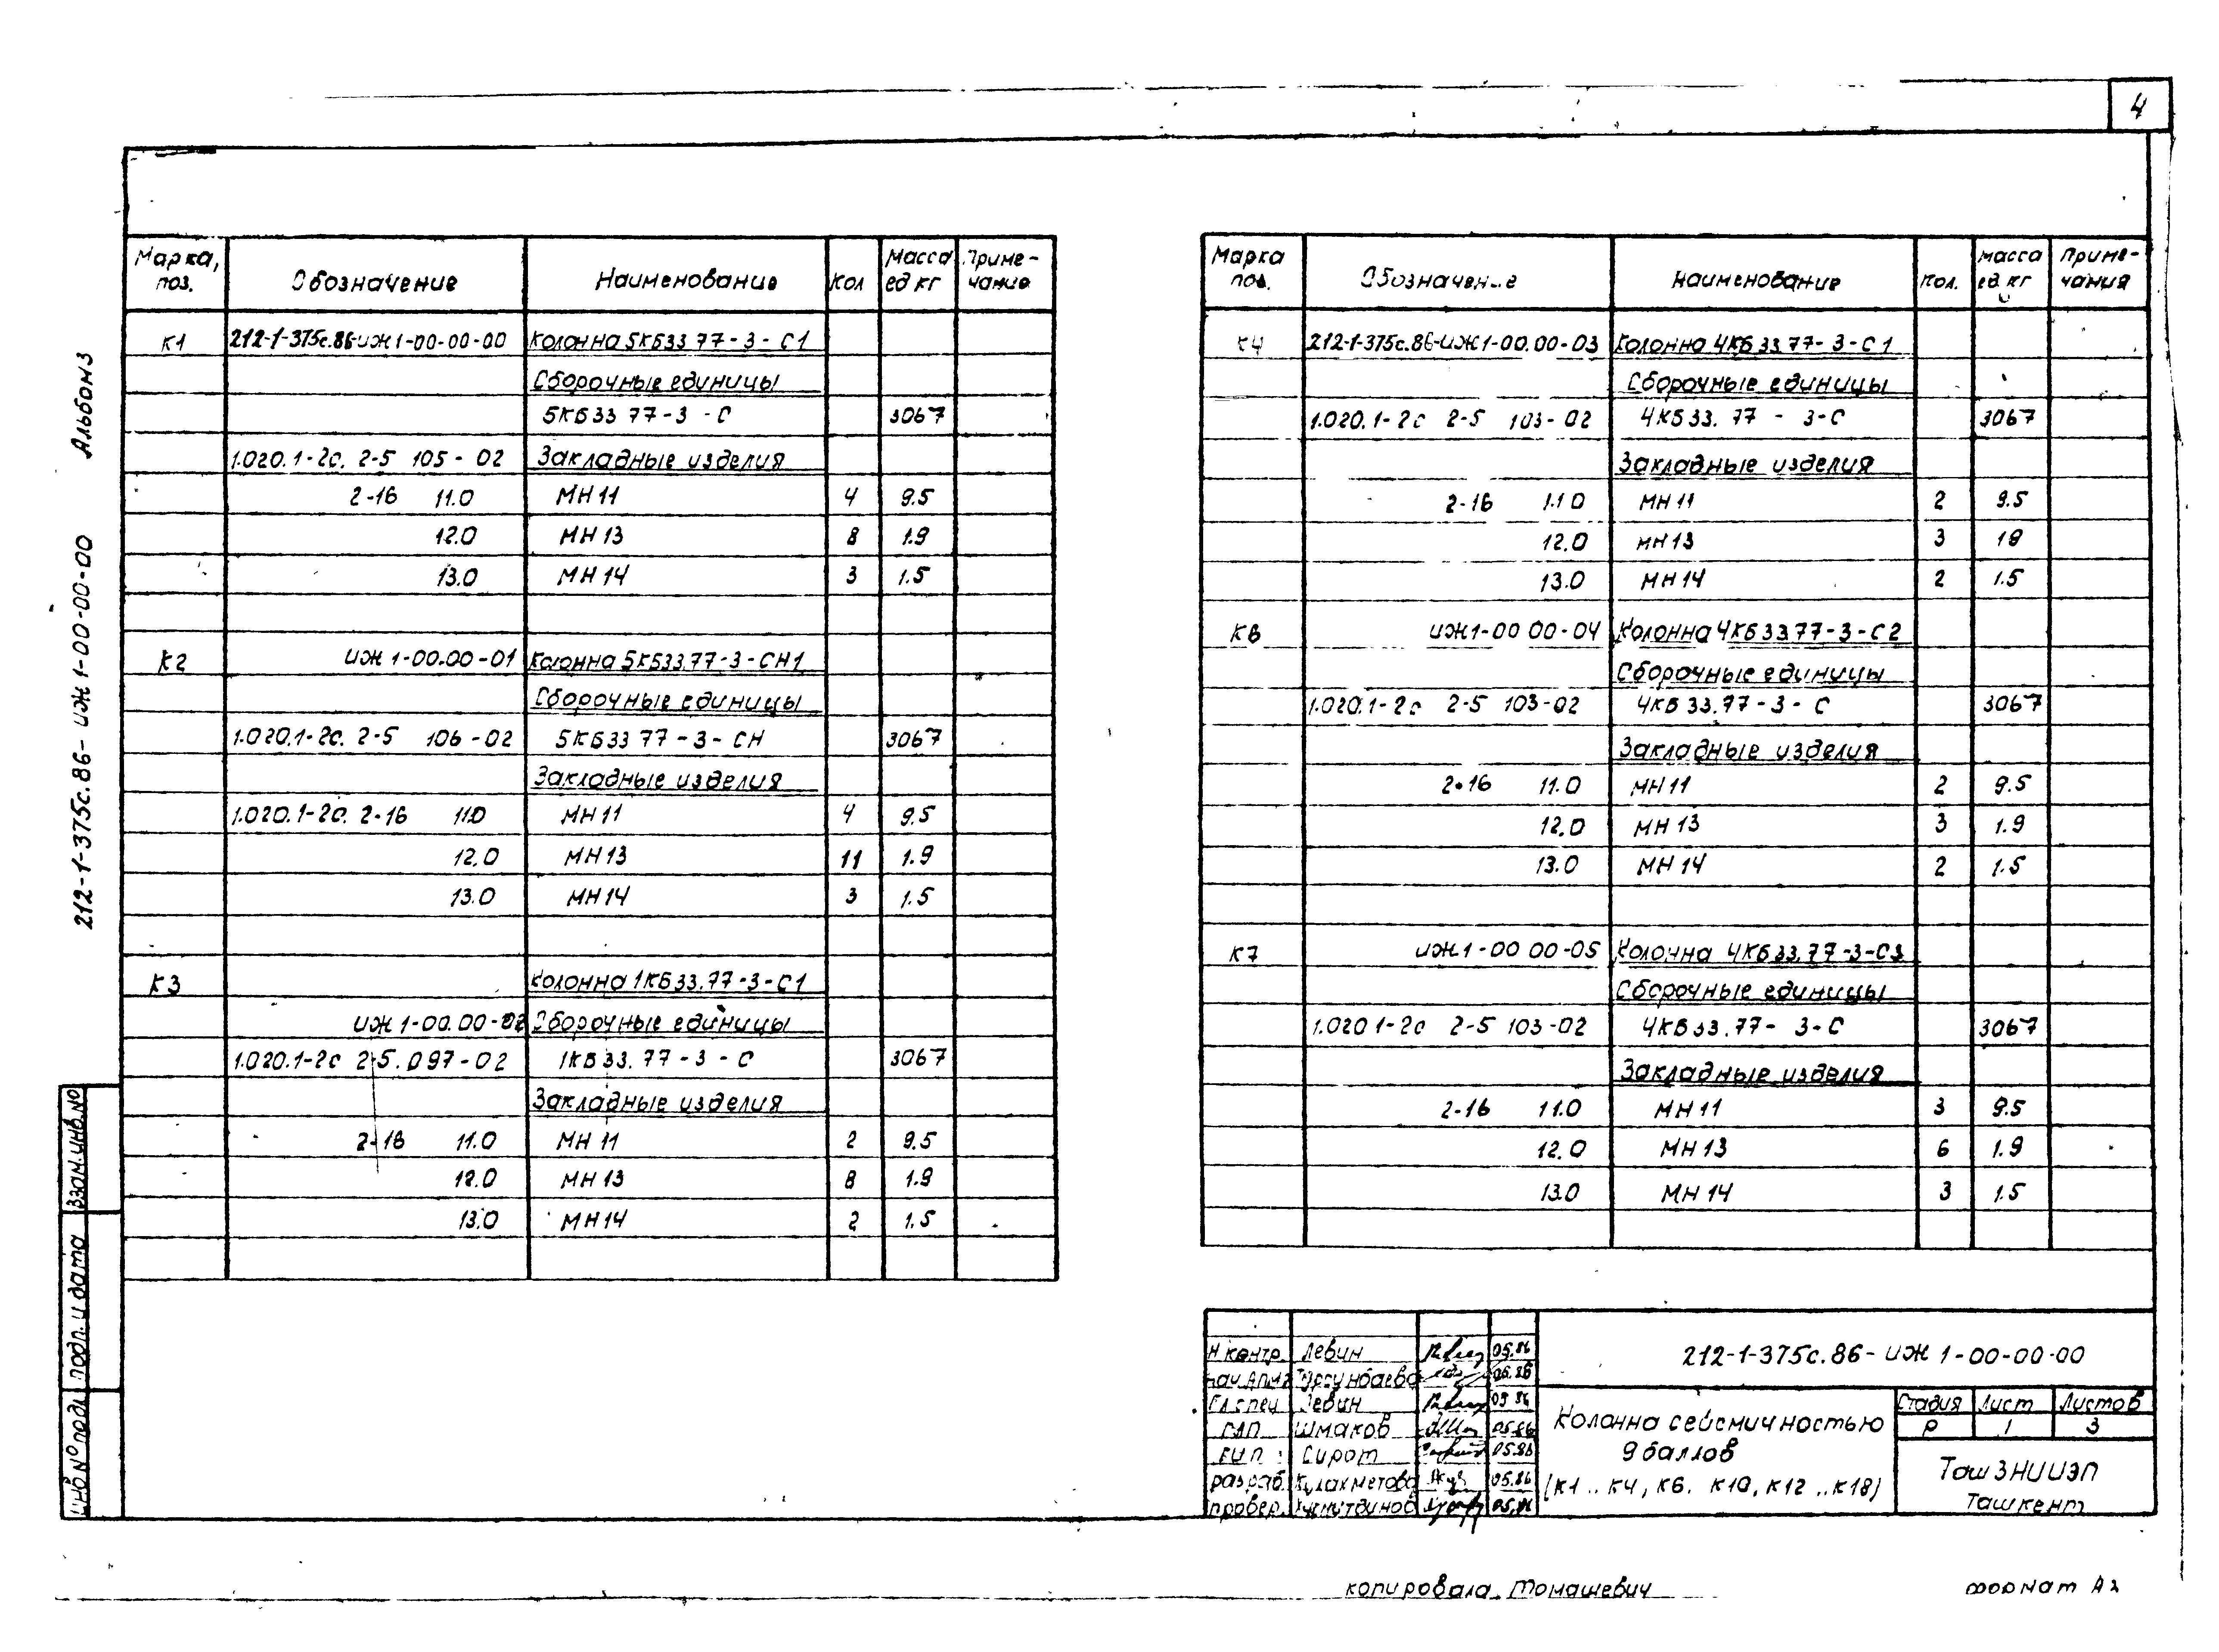 4
Альбом 3
212-1-375с.86- ИЖ 1-00-00-00
Марка, поз. Обозначение Наименование Кол Масса ед кг Приме-чание
К1 212-1-375с.86-ИЖ1-00-00-00 Колонна 5КБ33 77-3-С1
Сборочные единицы
5КБ33 77-3-С 3067
1.020.1-2с. 2-5 105-02 Закладные изделия
2-16 11.0 МН 11 4 9.5
12.0 МН 13 8 1.9
13.0 МН 14 3 1.5
К2 ИЖ 1-00.00-01 Колонна 5КБ33.77-3-СН1
Сборочные единицы
1.020.1-2с. 2-5 106-02 5КБ33 77-3-СН 3067
Закладные изделия
1.020.1-2с. 2-16 11.0 МН 11 4 9.5
12.0 МН 13 11 1.9
13.0 МН 14 3 1.5
К3 Колонна 1КБ33.77-3-С1
ИЖ 1-00.00-02 Сборочные единицы
1.020.1-2с 2-5.097-02 1КБ33.77-3-С 3067
Закладные изделия
2-16 11.0 МН 11 2 9.5
12.0 МН 13 8 1.9
13.0 МН 14 2 1.5
Марка поз. Обозначение Наименование Кол. Масса ед. кг Приме-чания
К4 212-1-375с.86-ИЖ1-00.00-03 Колонна 4КБ33.77-3-С1
Сборочные единицы
1.020.1-2с 2-5 103-02 4КБ33.77-3-С 3067
Закладные изделия
2-16 11.0 МН 11 2 9.5
12.0 МН 13 3 1 9
13.0 МН 14 2 1.5
К6 ИЖ1-00 00-04 Колонна 4КБ33.77-3-С2
Сборочные единицы
1.020.1-2с 2-5 103-02 4КБ33.77-3-С 3067
Закладные изделия
2-16 11.0 МН 11 2 9.5
12.0 МН 13 3 1.9
13.0 МН 14 2 1.5
К7 ИЖ1-00 00-05 Колонна 4КБ33.77-3-С3
Сборочные единицы
1.020 1-2с 2-5 103-02 4КБ33.77-3-С 3067
Закладные изделия
2-16 11.0 МН 11 3 9.5
12.0 МН 13 6 1.9
13.0 МН 14 3 1.5
Взам.инв.№
подп. и дата
инв № подл
Н контр. Левин 05.86
нач.АПМ2 Турсунбаева 05.86
Гл спец Левин 05 86
ГАП Шмаков 05.86
ГИП Сирот 05.86
разраб. Кулахметова 05.86
провер. 05.86
212-1-375с.86- ИЖ 1-00-00-00
Колонна сейсмичностью
9 баллов
(К1 .. К4, К6. К10, К12 .. К18)
Стадия Лист Листов
Р 1 3
ТашЗНИИЭП
Ташкент
копировала Томашевич
формат А2